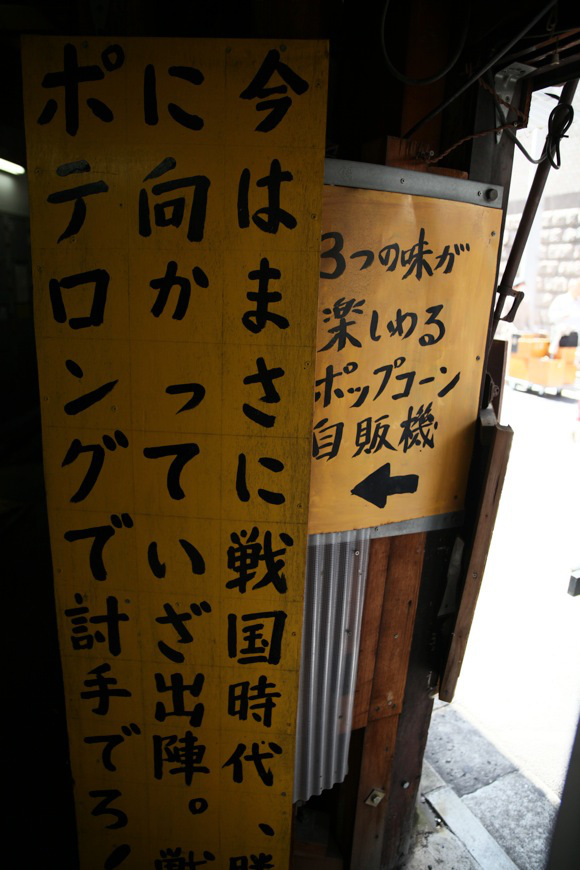 今はまさに戦国時代、勝
に向かっていざ出陣。戦
ポテロングで討手でろ！
3つの味が
楽しめる
ポップコーン
自販機